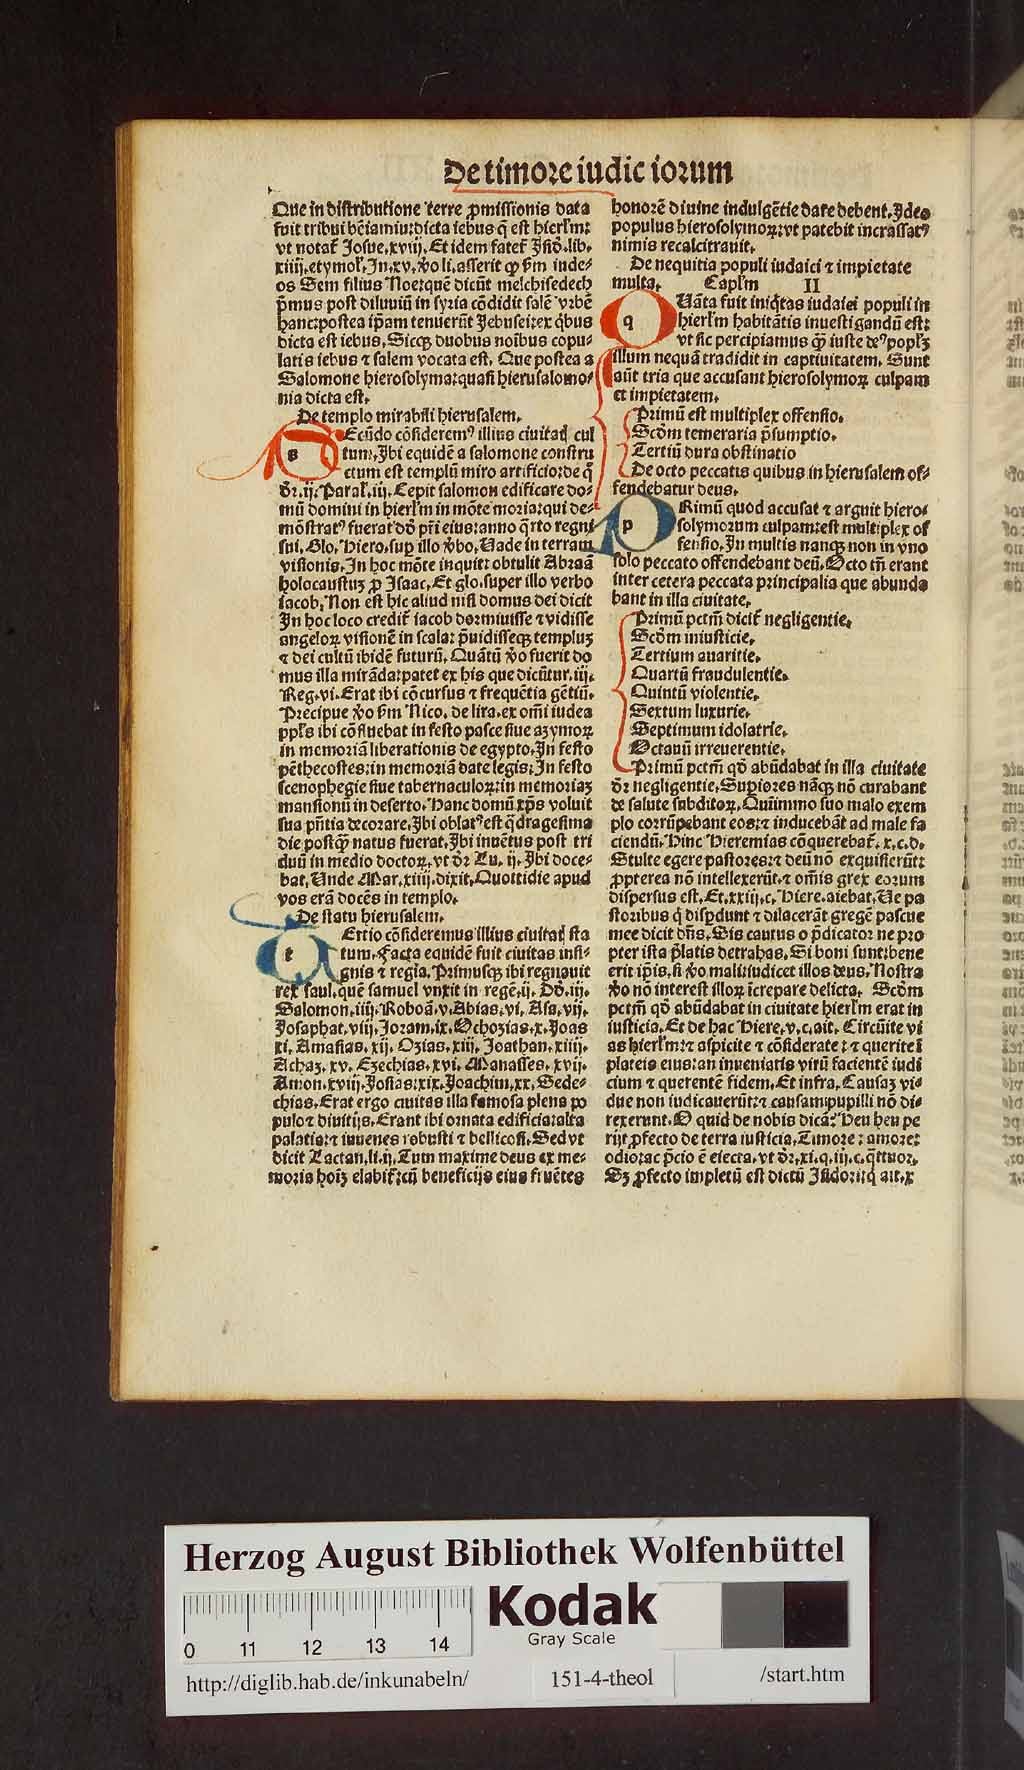 De timore iudic iorum
Que in distributione terre ꝓmissionis data
fuit tribui bēiamiu:dicta iebus q̄ est hierl'm:
vt notat̉ Josue.xviij. Et idem fatet̉ Jsid̉.lib.
xiiij.etymol̉. Jn.xv.ꝟo li.asserit ꝙ ẜm iude-
os Sem filius Noe:quē dicūt melchisedech
p̄mus post diluuiū in syria cōdidit salē vrbē
hanc:postea ip̄am tenuerūt Jebusei:ex q̇bus
dicta est iebus, Sicqꝫ duobus noībus copu-
latis iebus ⁊ salem vocata est. Que postea a
Salomone hierosolyma:quasi hierusalomo-
nia dicta est.
De templo mirabili hierusalem.
s Ecūdo cōsideremꝰ illius ciuitatꝭ cul
tum. Jbi equidē a salomone constru
ctum est templū miro artificio:de q̊
d̉r.ij. Paral̉.iij. Cepit salomon edificare do-
mū domini in hierl'm in mōte moria:qui de-
mōstratꝰ fuerat dd̉ pr̄i eius:anno q̈rto regni
sui. Glo. Hiero.suꝑ illo ꝟbo. Vade in terram
visionis. Jn hoc mōte inquiūt obtulit Abraā
holocaustuꝫ ꝓ Jsaac. Et glo.super illo verbo
iacob. Non est hic aliud nisi domus dei dicit
Jn hoc loco credit̉ iacob dormiuisse ⁊ vidisse
angeloꝝ visionē in scala: p̄uidisseqꝫ templuꝫ
⁊ dei cultū ibidē futurū. Quātū ꝟo fuerit do
mus illa mirāda:patet ex his que dicūtur.iij.
Reg.vi. Erat ibi cōcursus ⁊ frequētia gētiū.
Precipue ꝟo ẜm Nico. de lira.ex om̄i iudea
ppl̓s ibi cōfluebat in festo pasce siue azymoꝝ
in memoriā liberationis de egypto. Jn festo
pēthecostes:in memoriā date legis: Jn festo
scenophegie siue tabernaculoꝝ:in memoriaꝫ
mansionū in deserto. Hanc domū xp̄s voluit
sua pn̄tia decorare. Jbi oblatꝰ est q̈dragesima
die postq̄ꝫ natus fuerat. Jbi inuētus post tri
duū in medio doctoꝝ.vt d̉r Lu. ij. Jbi doce-
bat. Unde Mar.xiiij.dixit. Quottidie apud
vos erā docēs in templo.
De statu hierusalem.
t Ertio cōsideremus illius ciuitatꝭ sta
tum. Facta equidē fuit ciuitas insi-
gnis ⁊ regia. Primusqꝫ ibi regnauit
rex saul.quē samuel vnxit in regē.ij. Dd̉.iij.
Salomon.iiij. Roboā.v. Abias.vi. Asa.vij.
Josaphat.viij. Joram.ix. Ochozias.x. Joas
xi. Amasias.xij. Ozias.xiij. Joathan.xiiij.
Achaz.xv. Ezechias.xvi. Manasses.xvij.
Amon.xviij. Josias:xix. Joachim.xx. Sede-
chias. Erat ergo ciuitas illa famosa plena po
pulo⁊ diuitijs. Erant ibi ornata edificia:alta
palatia:⁊ iuuenes robusti ⁊ bellicosi. Sed vt
dicit Lactan.li.ij. Tum maxime deus ex me-
moria hoīꝫ elabit̉:cū beneficijs eius fruētes
honorē diuine indulgētie dare debent. Jdeo
populus hierosolymoꝝ:vt patebit incrassatꝰ
nimis recalcitrauit.
De nequitia populi iudaici ⁊ impietate
multa. Capl'm II
q Uāta fuit iniq̇tas iudaici populi in
hierl'm habitātis inuestigandū est:
vt sic percipiamus ꝙ̄ iuste deꝰ popl̓ꝫ
illum nequā tradidit in captiuitatem. Sunt
aūt tria que accusant hierosolymoꝝ culpam
et impietatem.
Primū est multiplex offensio.
Scd̄m temeraria p̄sumptio.
Tertiū dura obstinatio
De octo peccatis quibus in hierusalem of-
fendebatur deus.
p Rimū quod accusat ⁊ arguit hiero-
solymorum culpam:est multiplex of
fensio. Jn multis nanqꝫ non in vno
solo peccato offendebant deū. Octo tn̄ erant
inter cetera peccata principalia que abunda
bant in illa ciuitate.
Primū pctm̄ dicit̉ negligentie.
Scd̄m iniusticie.
Tertium auaritie.
Quartū fraudulentie.
Quintū violentie.
Sextum luxurie.
Septimum idolatrie.
Octauū irreuerentie.
Primū pctm̄ qd̄ abūdabat in illa ciuitate
d̉r negligentie. Supiores nāqꝫ nō curabant
de salute subditoꝝ. Quinimmo suo malo exem
plo corrūpebant eos:⁊ inducebāt ad male fa
ciendū. Hinc Hieremias cōquerebat̉. x.c.d.
Stulte egere pastores:⁊ deū nō exquisierūt:
ꝓpterea nō intellexerūt.⁊ om̄is grex eorum
dispersus est. Et.xxiij.c. Hiere.aiebat. Ve pa
storibus q̇ disꝑdunt ⁊ dilacerāt gregē pascue
mee dicit dn̄s. Sis cautus o p̄dicator ne pro
pter ista p̄latis detrahas. Si boni sunt:bene
erit ip̄is.si ꝟo mali:iudicet illos deus. Nostra
ꝟo nō interest illoꝝ īcrepare delicta. Scd̄m
pctm̄ qd̄ abūdabat in ciuitate hierl'm erat in
iusticia. Et de hac Hiere.v.c.ait. Circūite vi
as hierl'm:⁊ aspicite ⁊ cōsiderate:⁊ querite ī
plateis eius:an inueniatis virū facientē iudi
cium ⁊ querentē fidem. Et infra. Causaꝫ vi-
due non iudicauerūt:⁊ causam pupilli nō di-
rexerunt. O quid de nobis dicā? Heu heu pe
rijt ꝓfecto de terra iusticia. Timore: amore:
odio:ac p̄cio ē eiecta.vt d̉r.xi.q.iij.c.q̈ttuor.
Sꝫ ꝓfecto impletū est dictū Jsidori:q̇ ait.x
Herzog August Bibliothek Wolfenbüttel
Kodak
Gray Scale
0 11 12 13 14
http://diglib.hab.de/inkunabeln/ 151-4-theol /start.htm